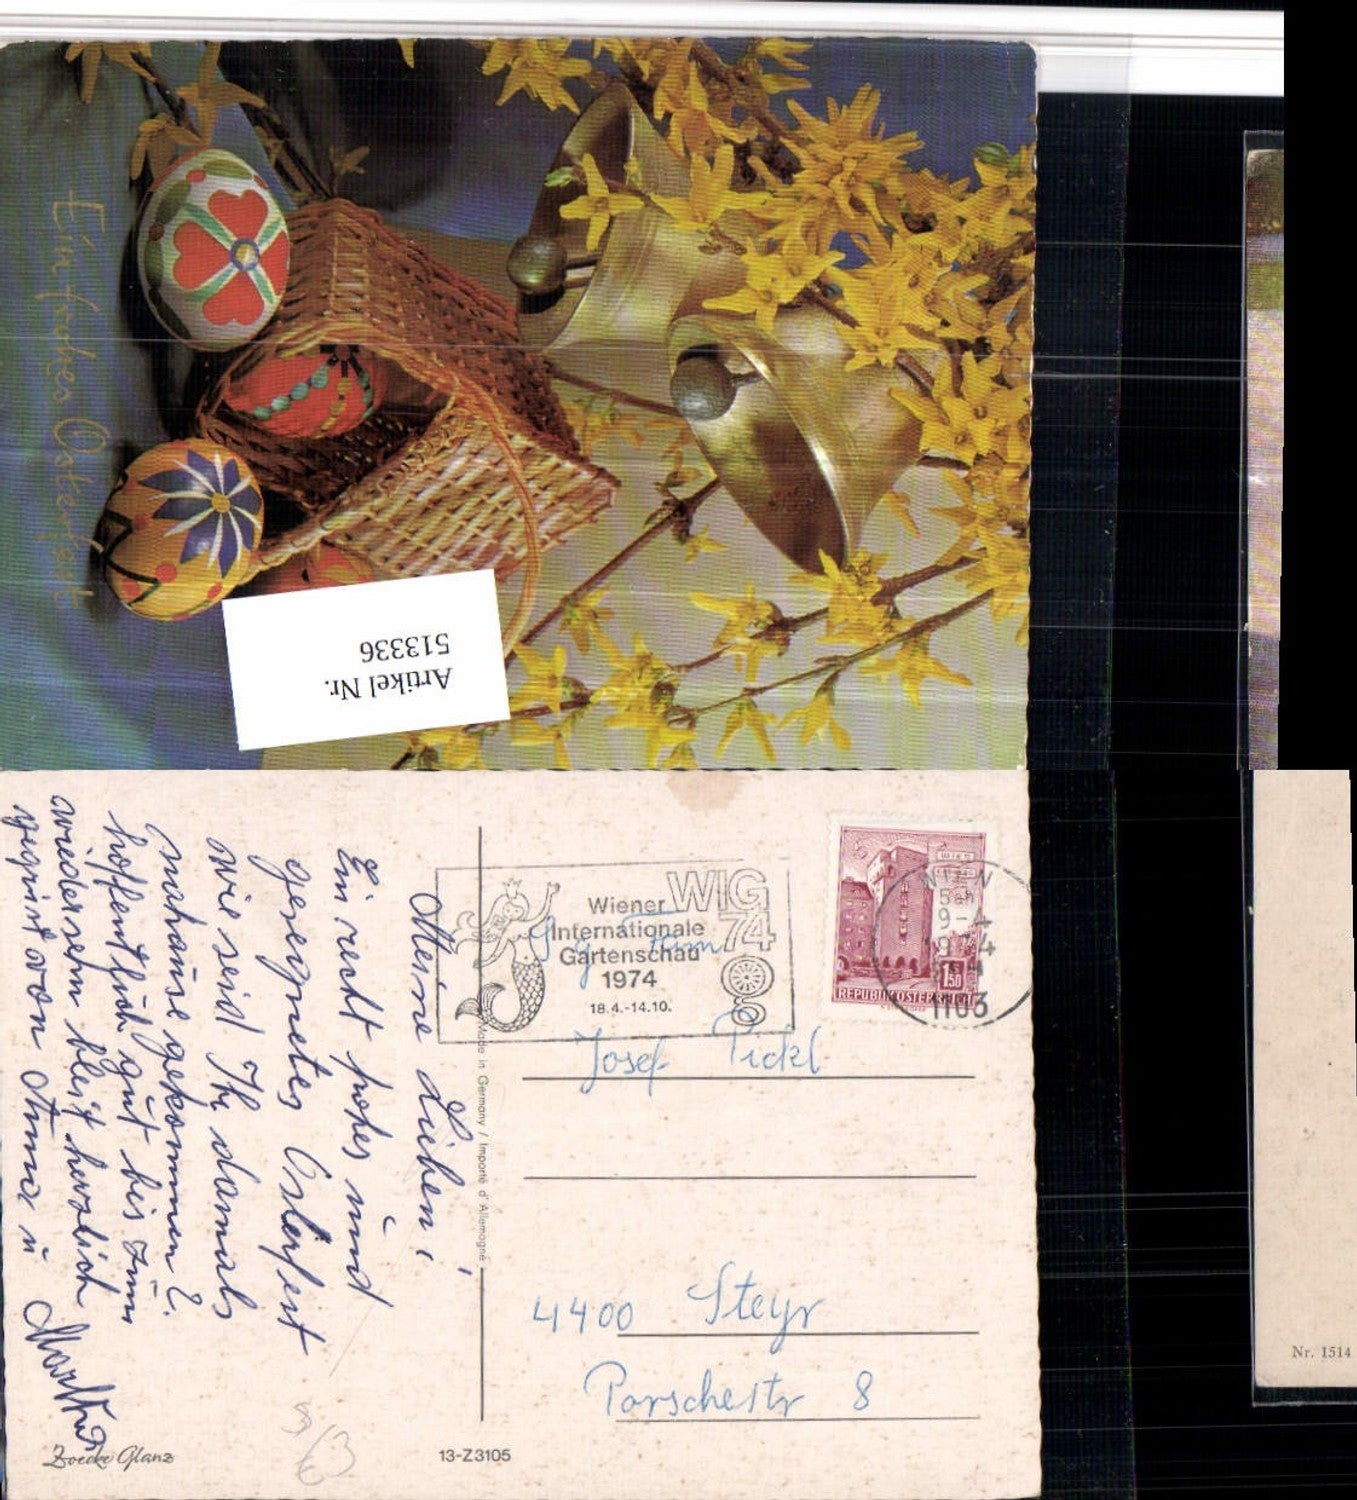 Ein frohes Osterfest
Artikel Nr.
513336
Meine Lieben!
Ein recht frohes und
gesegnetes Osterfest
wie seid Ihr damals
nahause gekommen?
hoffentlich gut bis zum
wiedersehn bleit herzlich
gegrüst von Anna ü
Zoecke Glanz
13-Z3105
Made in Germany / Importé d'Allemagne
Wiener
Internationale
Gartenschau
1974
18.4.-14.10.
WIG
74
WIEN
1103
WIEN
1 50
REPUBLIK ÖSTERREICH
Fam
Josef Pickl
4400 Steyr
Porschestr 8
Nr. 1514